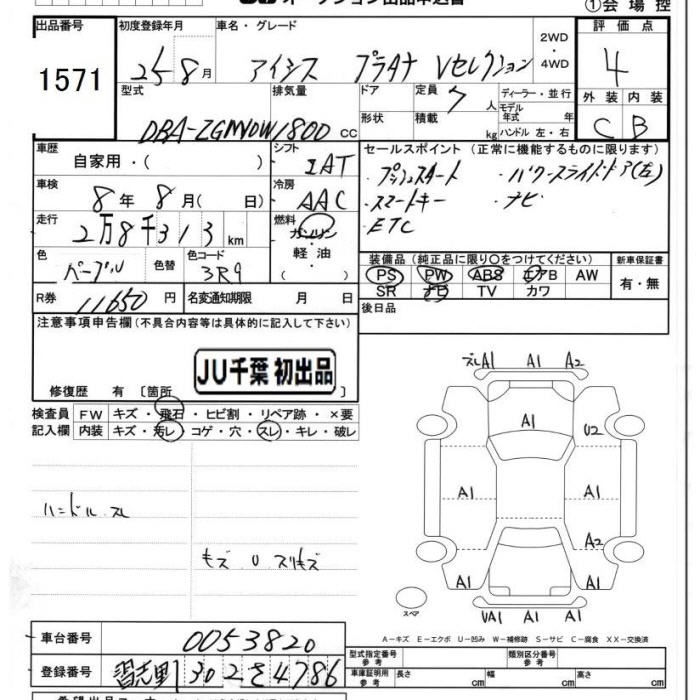 オークション出品申込書
①会場控
出品番号 初度登録年月 車名・グレード 評価点
1571 25 8月 アイシス プラタナ Vセレクション 2WD・4WD 4
型式 排気量 ドア 定員 7人 ディーラー・並行 外装 内装
DBA-ZGM10W 1800cc 形状 積載 kg モデル年式 年 ハンドル 左・右 C B
車歴 自家用・( ) シフト IAT
セールスポイント (正常に機能するものに限ります)
・プッシュスタート ・パワースライドドア(左)
・スマートキー ・ナビ
・ETC
車検 8年8月( 日) 冷房 AAC
走行 2万8千313km 燃料 ガソリン・軽油・( )
色 パープル 色替 色コード 3R9
装備品 (純正品に限り○をつけてください) 新車保証書
PS PW ABS エアB AW 有・無
SR ナビ TV カワ
R券 11650円 名変通知期限 月 日
後日品
注意事項申告欄(不具合内容等は具体的に記入して下さい)
JU千葉 初出品
修復歴 有 〔箇所
検査員 FW キズ・飛石・ヒビ割・リペア跡・×要
記入欄 内装 キズ・汚レ・コゲ・穴・スレ・キレ・破レ
ハンドル スレ
キズ U スリキズ
スレA1 A1 A2
A1 U2
A1 A1
A2
A1 A1
スペア UA1 A1 A1
A−キズ E−エクボ U−凹み W−補修跡 S−サビ C−腐食 XX−交換済
車台番号 0053820
登録番号 習志野 302 さ 4786
型式指定番号 参考 類別区分番号 参考
車庫証明用 参考 長さ cm 幅 cm 高さ cm